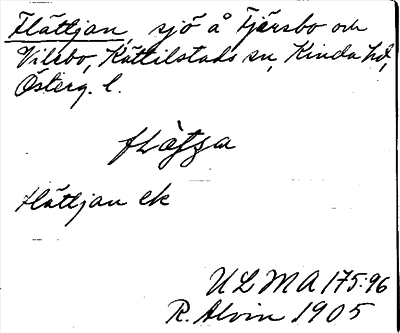 Flättjan, sjö å Fjärsbo och
Vilsbo, Kättilstads sn, Kinda hd,
Österg. l.
flätja
Flättjan ek
ULMA 175:96
R. Alvin 1905